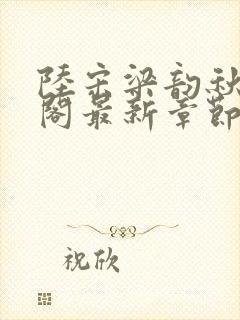 陸宗梁韵秋
閣最新章節
祝欣